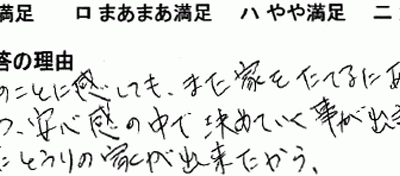 満足 ロ まあまあ満足 ハ やや満足 ニ
答の理由
のことに感しても、また家をたてるにあ
つ、安心感の中で決めていく事が出来
たとうりの家が出来たから、